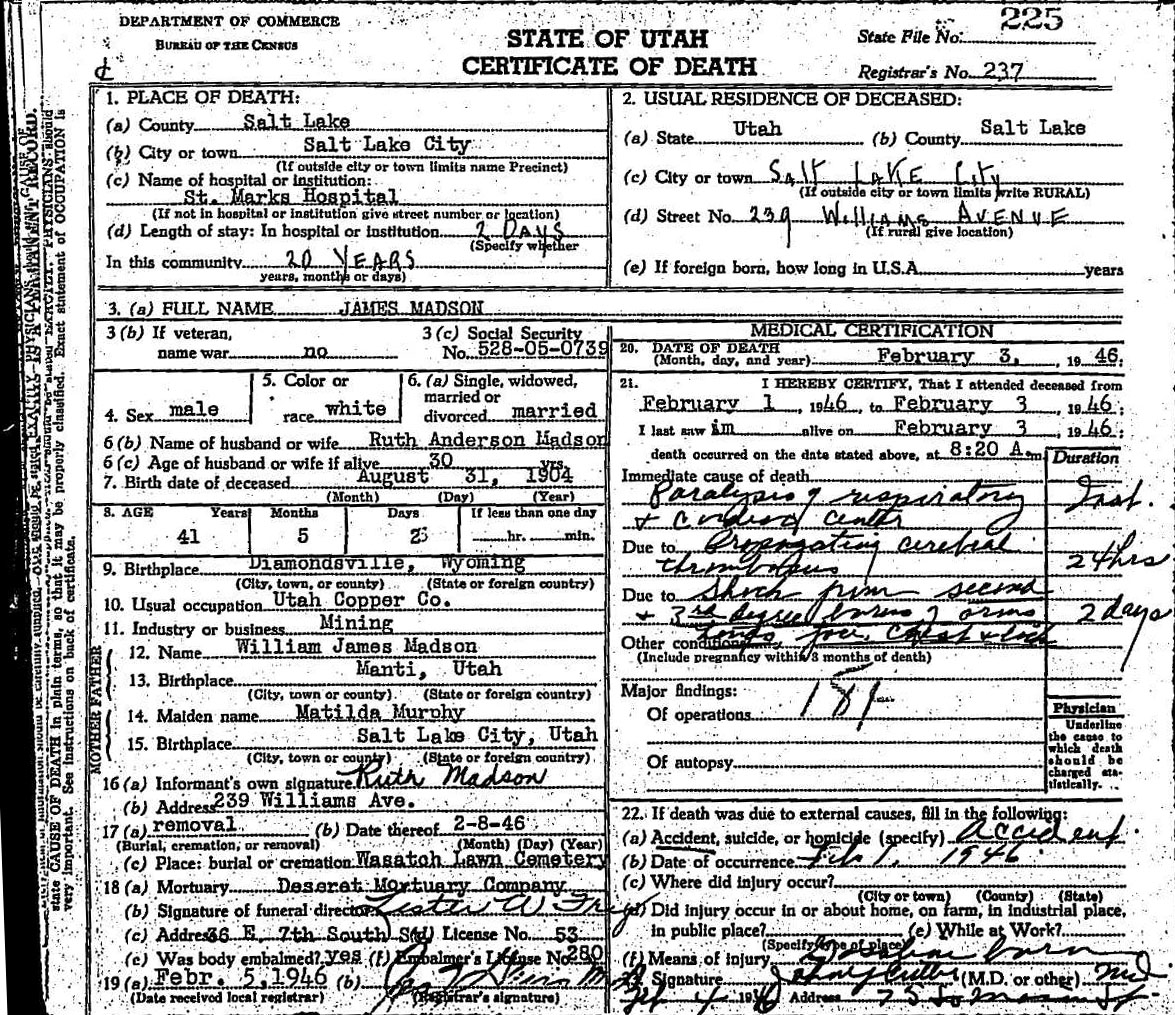 DEPARTMENT OF COMMERCE
BUREAU OF THE CENSUS
STATE OF UTAH
CERTIFICATE OF DEATH
State File No. 225
Registrar's No. 237
1. PLACE OF DEATH:
(a) County Salt Lake
(b) City or town Salt Lake City
(If outside city or town limits name Precinct)
(c) Name of hospital or institution:
St. Marks Hospital
(If not in hospital or institution give street number or location)
(d) Length of stay: In hospital or institution 2 DAYS
(Specify whether
In this community 20 YEARS
years, months or days)
2. USUAL RESIDENCE OF DECEASED:
(a) State Utah (b) County Salt Lake
(c) City or town SALT LAKE CITY
(If outside city or town limits write RURAL)
(d) Street No. 239 WILLIAMS AVENUE
(If rural give location)
(e) If foreign born, how long in U.S.A. years
3. (a) FULL NAME JAMES MADSON
3 (b) If veteran,
name war no
3 (c) Social Security
No. 528-05-0739
4. Sex male
5. Color or
race white
6. (a) Single, widowed,
married or
divorced married
6 (b) Name of husband or wife Ruth Anderson Madson
6 (c) Age of husband or wife if alive 30 yrs.
7. Birth date of deceased August 31, 1904
(Month) (Day) (Year)
8. AGE Years Months Days If less than one day
41 5 23 hr. min.
9. Birthplace Diamondsville, Wyoming
(City, town, or county) (State or foreign country)
10. Usual occupation Utah Copper Co.
11. Industry or business Mining
FATHER
12. Name William James Madson
13. Birthplace Manti, Utah
(City, town or county) (State or foreign country)
MOTHER
14. Maiden name Matilda Murphy
15. Birthplace Salt Lake City, Utah
(City, town or county) (State or foreign country)
16 (a) Informant's own signature Ruth Madson
(b) Address 239 Williams Ave.
17 (a) removal (b) Date thereof 2-8-46
(Burial, cremation, or removal) (Month) (Day) (Year)
(c) Place: burial or cremation Wasatch Lawn Cemetery
18 (a) Mortuary Deseret Mortuary Company
(b) Signature of funeral director Lester W
(c) Address 36 E. 7th South St (d) License No. 53
(e) Was body embalmed? yes (f) Embalmer's License No. 280
19 (a) Febr. 5, 1946 (b)
(Date received local registrar) (Registrar's signature)
MEDICAL CERTIFICATION
20. DATE OF DEATH
(Month, day, and year) February 3, 1946.
21. I HEREBY CERTIFY, That I attended deceased from
February 1, 1946, to February 3, 1946;
I last saw im alive on February 3, 1946;
death occurred on the date stated above, at 8:20 A.m.
Duration
Immediate cause of death
Paralysis of respiratory Inst.
& center
Due to Propagating cerebral
24 hrs
Due to Shock from second
& 3rd degree burns of arms 2 days
chest &
Other conditions
(Include pregnancy within 3 months of death)
Major findings:
Of operations 181
Of autopsy
Physician
Underline
the cause to
which death
should be
charged sta-
tistically.
22. If death was due to external causes, fill in the following:
(a) Accident, suicide, or homicide (specify) Accident
(b) Date of occurrence Feb 1, 1946
(c) Where did injury occur?
(City or town) (County) (State)
(d) Did injury occur in or about home, on farm, in industrial place,
in public place? (e) While at Work?
(Specify type of place)
(f) Means of injury burn
Signature (M.D. or other) M.D.
1946 Address 75 So
state CAUSE OF DEATH in plain terms, so that it may be properly classified. Exact statement of OCCUPATION is
very important. See instructions on back of certificate.